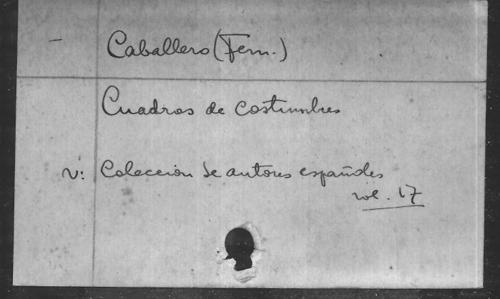 – Caballero (Fern.)
Cuadros de costumbres
v: Coleccion de autores españoles
vol. 17